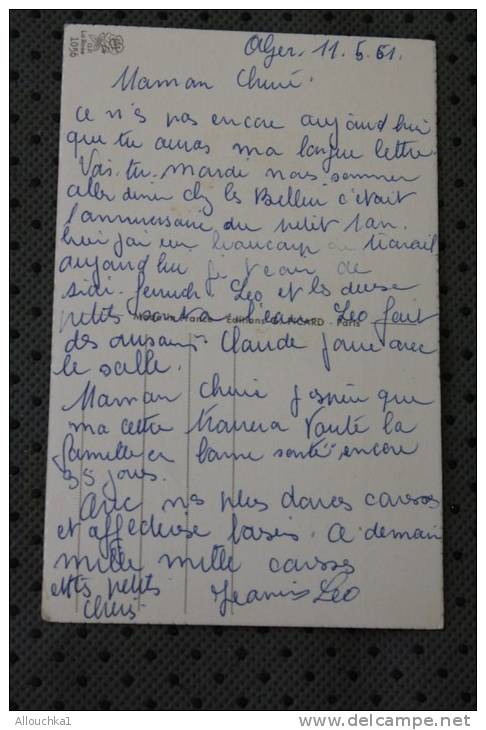 1056
Alger. 11.5.61.
Maman Cherie.
ce n'es pas encore aujourd'hui
que tu auras ma longue lettre.
Vois-tu mardi nous sommes
aller diner chez les c'était
l'anniversaire du petit 1 an.
hier j'ai eu beaucoup de travail
aujourd'hui je de
sidi. Leo et les deuse
petits sont a l'eau. Leo fait
Made in France Éditions - Paris
des Claude joue avec
le salle.
Maman Cherie j'espère que
ma lettre trouvera toute la
famille en bonne santé encore
35 jours.
Avec nos plus douces caresses
et affectueuse baisers. A demain
mille mille caresses
petits
Cheris. Leo
Allouchka1
www.delcampe.net